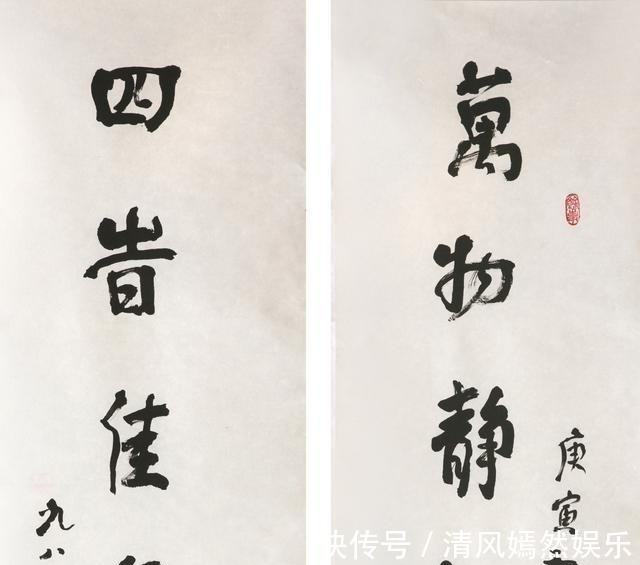 萬物静
庚寅
四旹佳
九八
快传号/清风嫣然娱乐